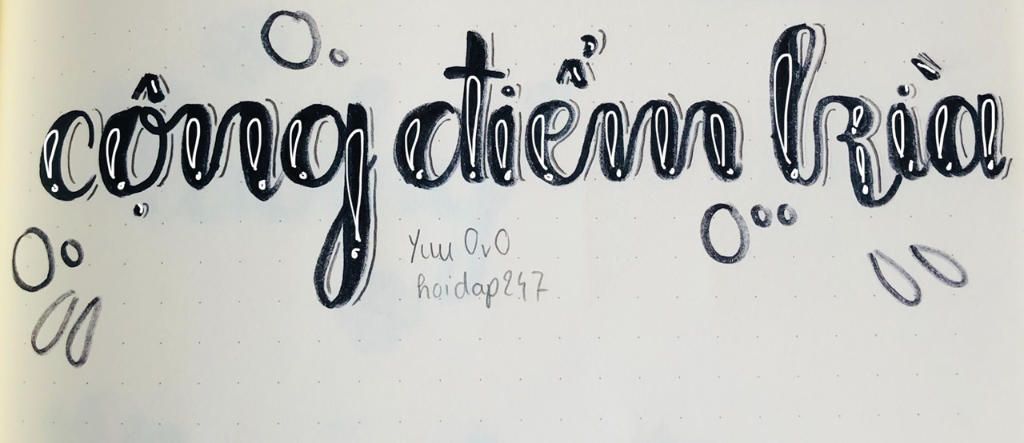 cộng điểm kìa
Yuu OvO
hoidap247